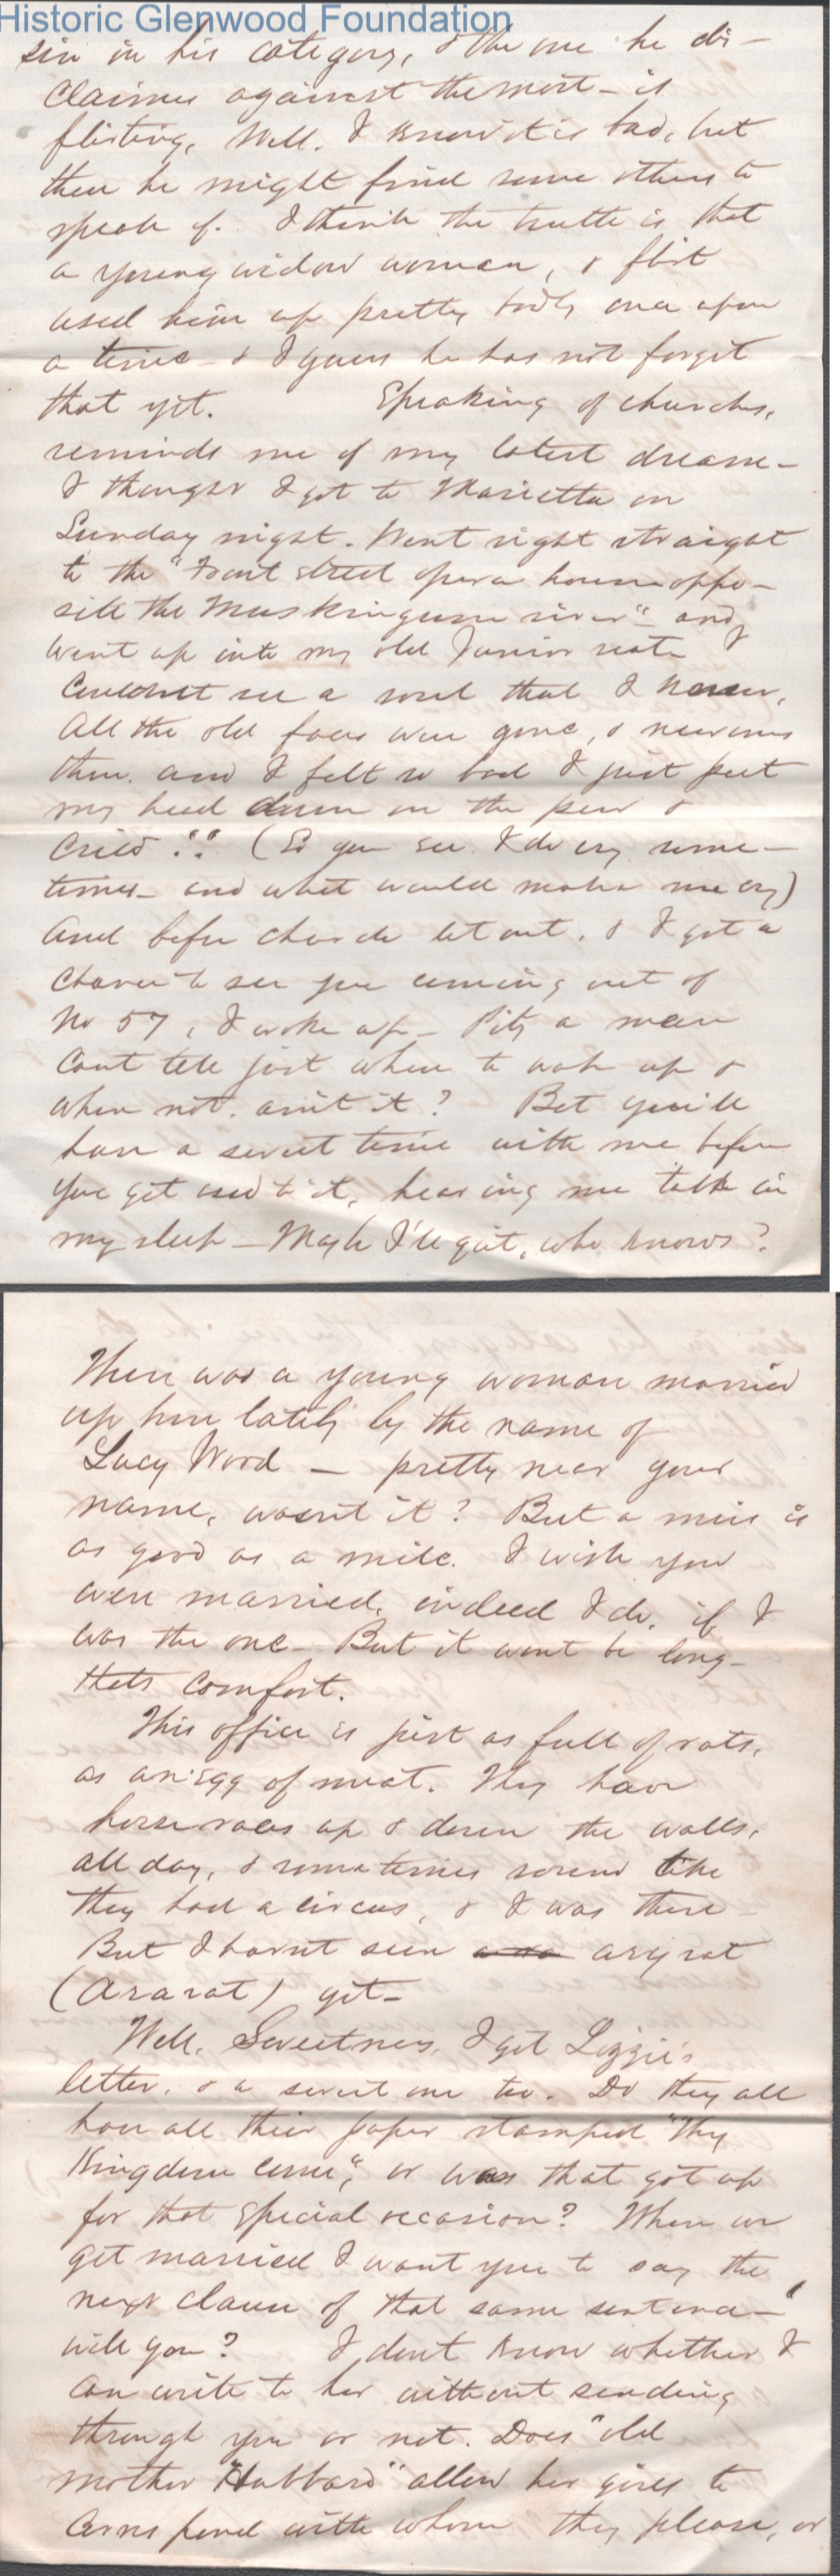 Historic Glenwood Foundation
sin in his category, & the one he dis-
claims against the most - is
flirting, Well. I know it is bad, but
then he might find some others to
speak of. I think the truth is that
a young widow woman, & flirt
used him up pretty badly once upon
a time - & I guess he has not forgot
that yet. Speaking of churches,
reminds me of my latest dream -
I thought I got to Marietta on
Sunday night. Went right straight
to the "Front street opera house oppo-
site the Muskingum river" - and
went up into my old Junior seat I
Couldnt see a soul that I knew,
All the old faces were gone, & new ones
there. and I felt so bad I just put
my head down on the pew &
cried !! (So you see I do cry some-
times - and what would make me cry)
And before church let out, & I got a
chance to see you coming out of
No 57, I woke up - Pity a man
cant tell just when to wake up &
when not. aint it? Bet you'll
have a sweet time with me before
you get used to it, hearing me talk in
my sleep - Maybe I'll quit, who knows?
There was a young woman married
up here lately by the name of
Lucy Wood - pretty near your
name, wasnt it? But a miss is
as good as a mile. I wish you
were married, indeed I do. if I
was the one - But it wont be long -
thats comfort.
This office is just as full of rats,
as an egg of meat. They have
horse races up & down the walls,
all day, & sometimes sound like
they had a circus, & I was there -
But I havnt seen ary rat
(Ararat) yet -
Well, Sweetness, I got Lizzie's
letter, & a sweet one too. Do they all
have all their paper stamped "Thy
Kingdom come", or was that got up
for that special occasion? When we
get married I want you to say the
next clause of that same sentence -
will you? I dont know whether I
can write to her without sending
through you or not. Does "old
mother Hubbard" allow her girls to
correspond with whom they please, or